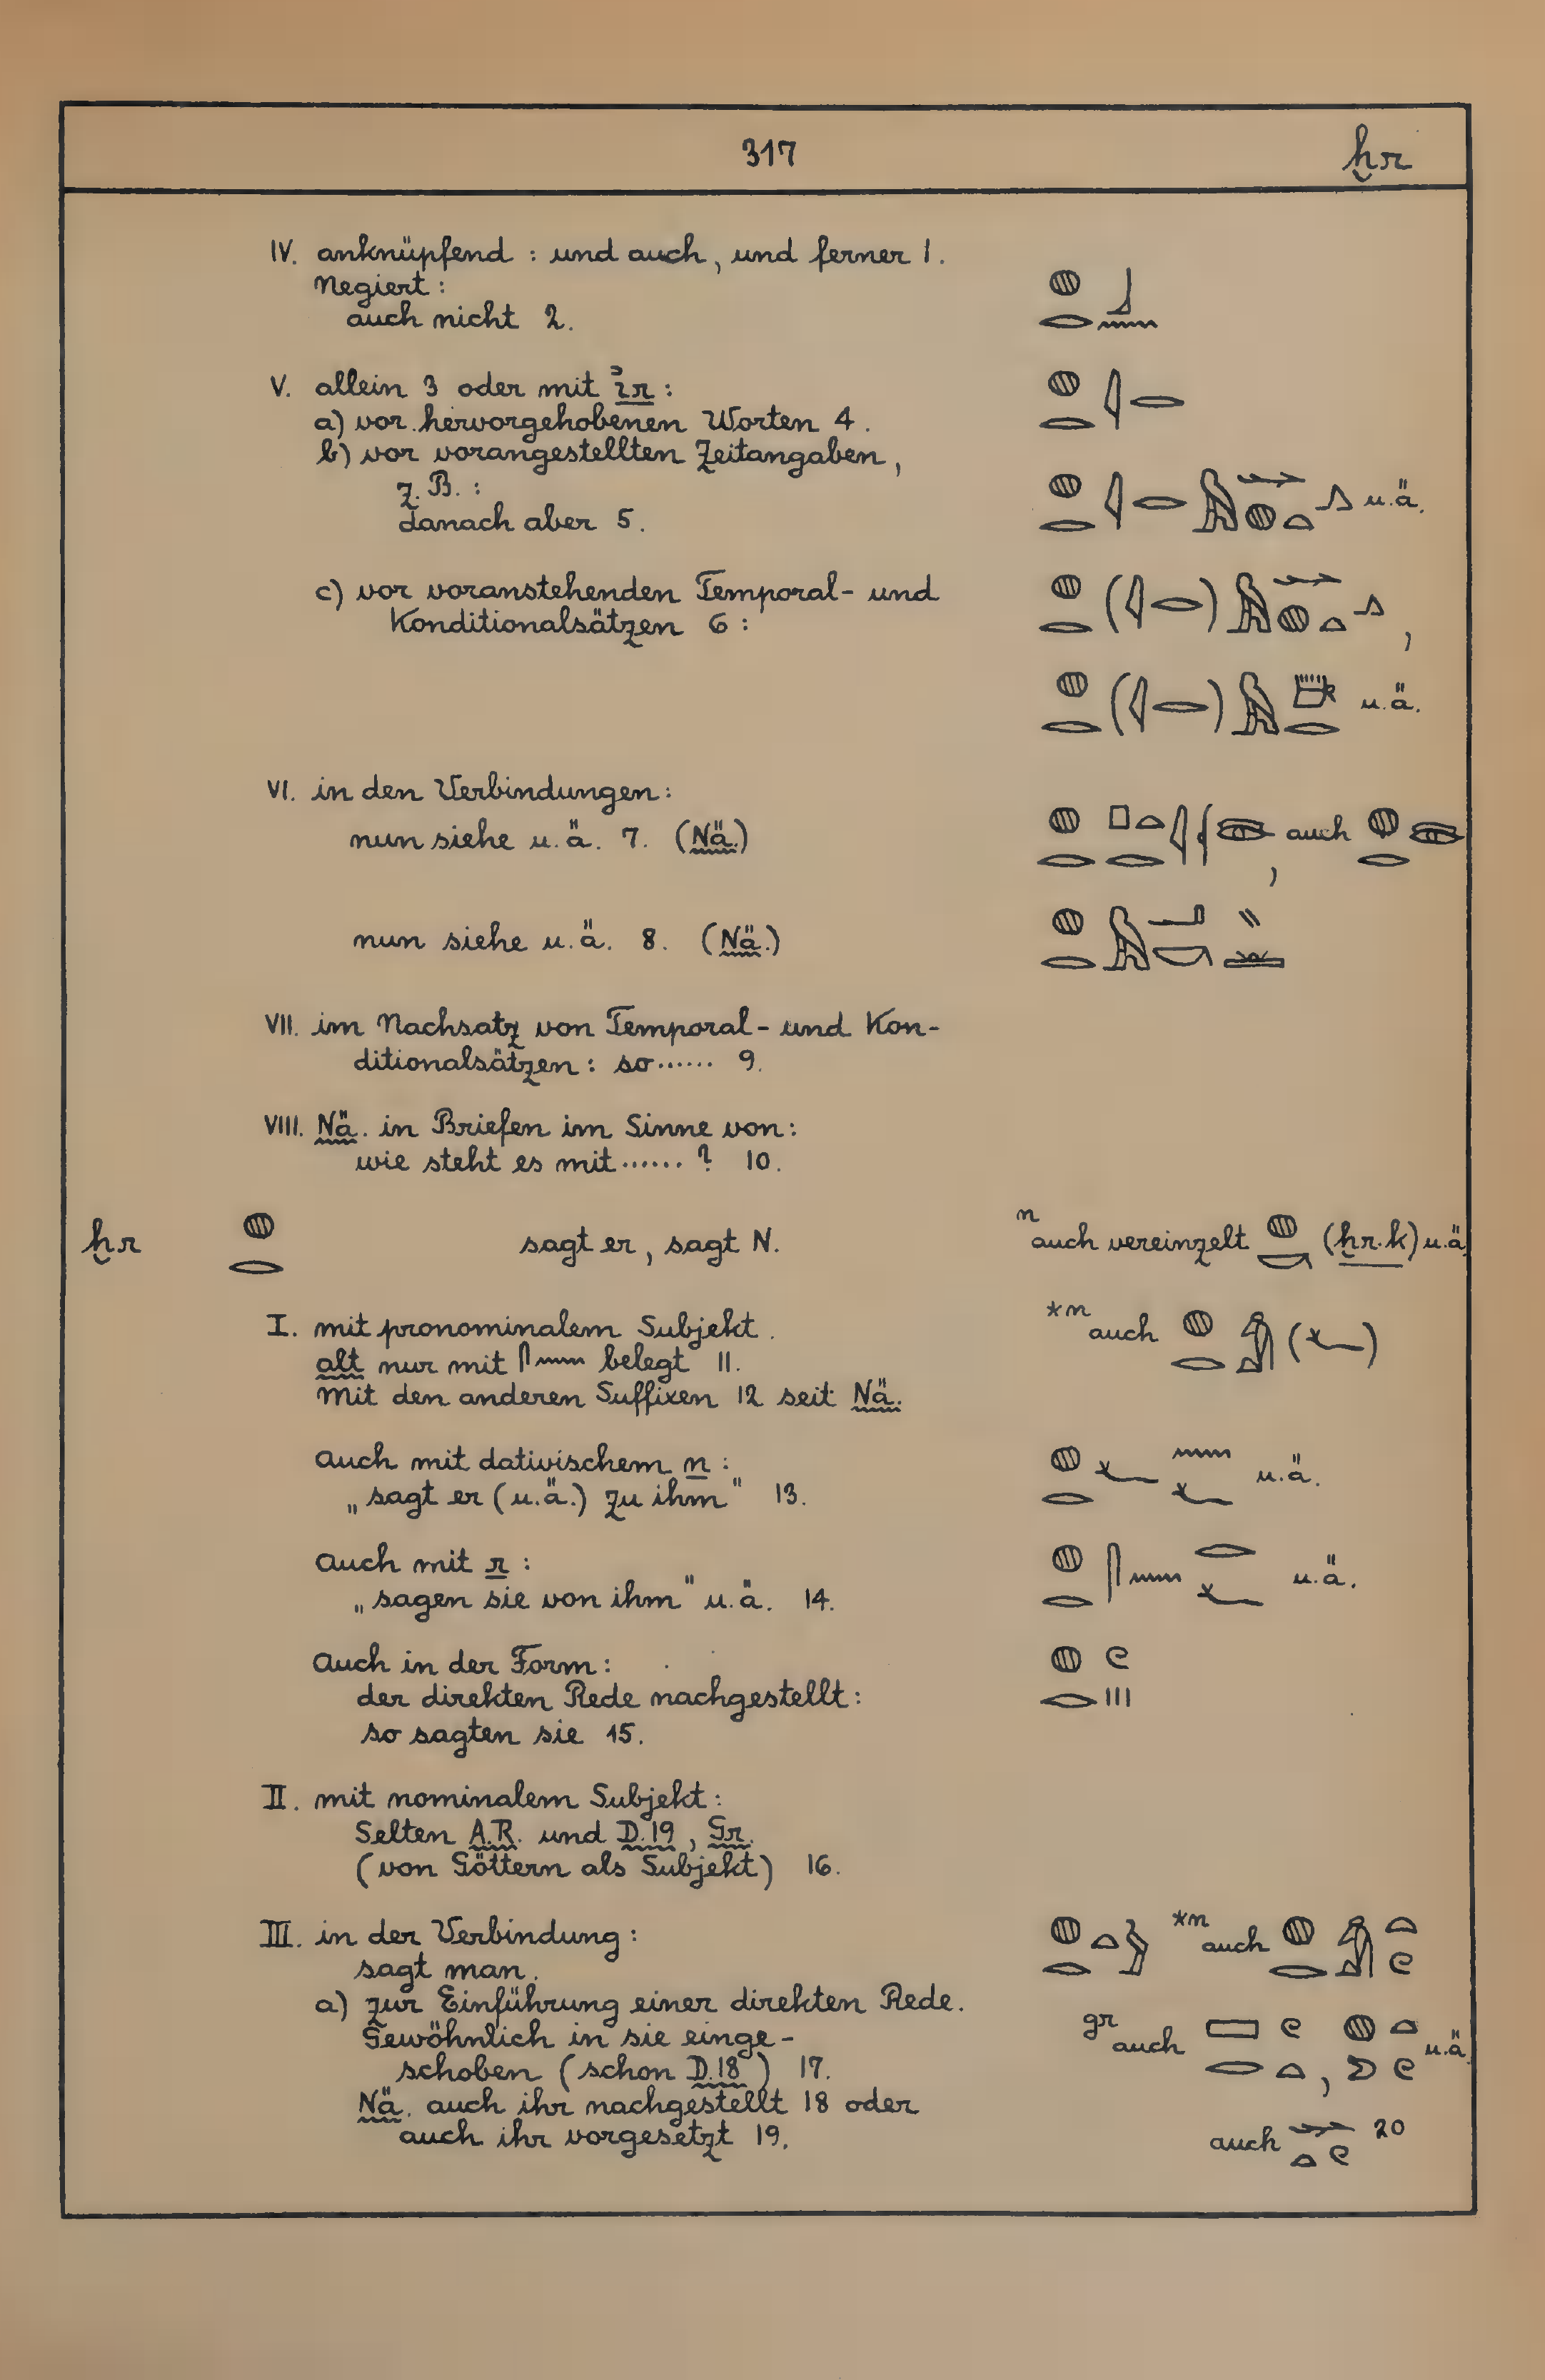 317 ḫr
IV. anknüpfend : und auch, und ferner 1.
Negiert :
auch nicht 2.
V. allein 3 oder mit ỉr :
a) vor hervorgehobenen Worten 4.
b) vor vorangestellten Zeitangaben,
z. B. :
danach aber 5. u.ä.
c) vor voranstehenden Temporal- und
Konditionalsätzen 6 : ,
u.ä.
VI. in den Verbindungen :
nun siehe u.ä. 7. (Nä.) , auch
nun siehe u.ä. 8. (Nä.)
VII. im Nachsatz von Temporal- und Kon-
ditionalsätzen : so...... 9.
VIII. Nä. in Briefen im Sinne von :
wie steht es mit......? 10.
ḫr sagt er, sagt N. n auch vereinzelt (ḫr.k) u.ä.
I. mit pronominalem Subjekt. *n auch
alt nur mit 𓋴𓈖 belegt 11.
Mit den anderen Suffixen 12 seit Nä.
Auch mit dativischem n :
„sagt er (u.ä.) zu ihm" 13. u.ä.
Auch mit r :
„sagen sie von ihm" u.ä. 14. u.ä.
Auch in der Form :
der direkten Rede nachgestellt :
so sagten sie 15.
II. mit nominalem Subjekt :
Selten A.R. und D.19, Gr.
(von Göttern als Subjekt) 16.
III. in der Verbindung : *n auch
sagt man.
a) zur Einführung einer direkten Rede.
Gewöhnlich in sie einge- gr auch , u.ä.
schoben (schon D.18) 17.
Nä. auch ihr nachgestellt 18 oder
auch ihr vorgesetzt 19. auch 20